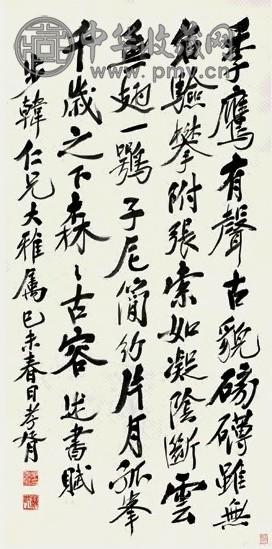 中华收藏网
www.pmy.cn
季鷹有聲古貌磅礴雖無
名驗攀附張索如凝陰斷雲
垂翅一鶚子尼簡約片月孤峯
千歲之下森〻古容 述書賦
步韓仁兄大雅屬 己未春日孝胥